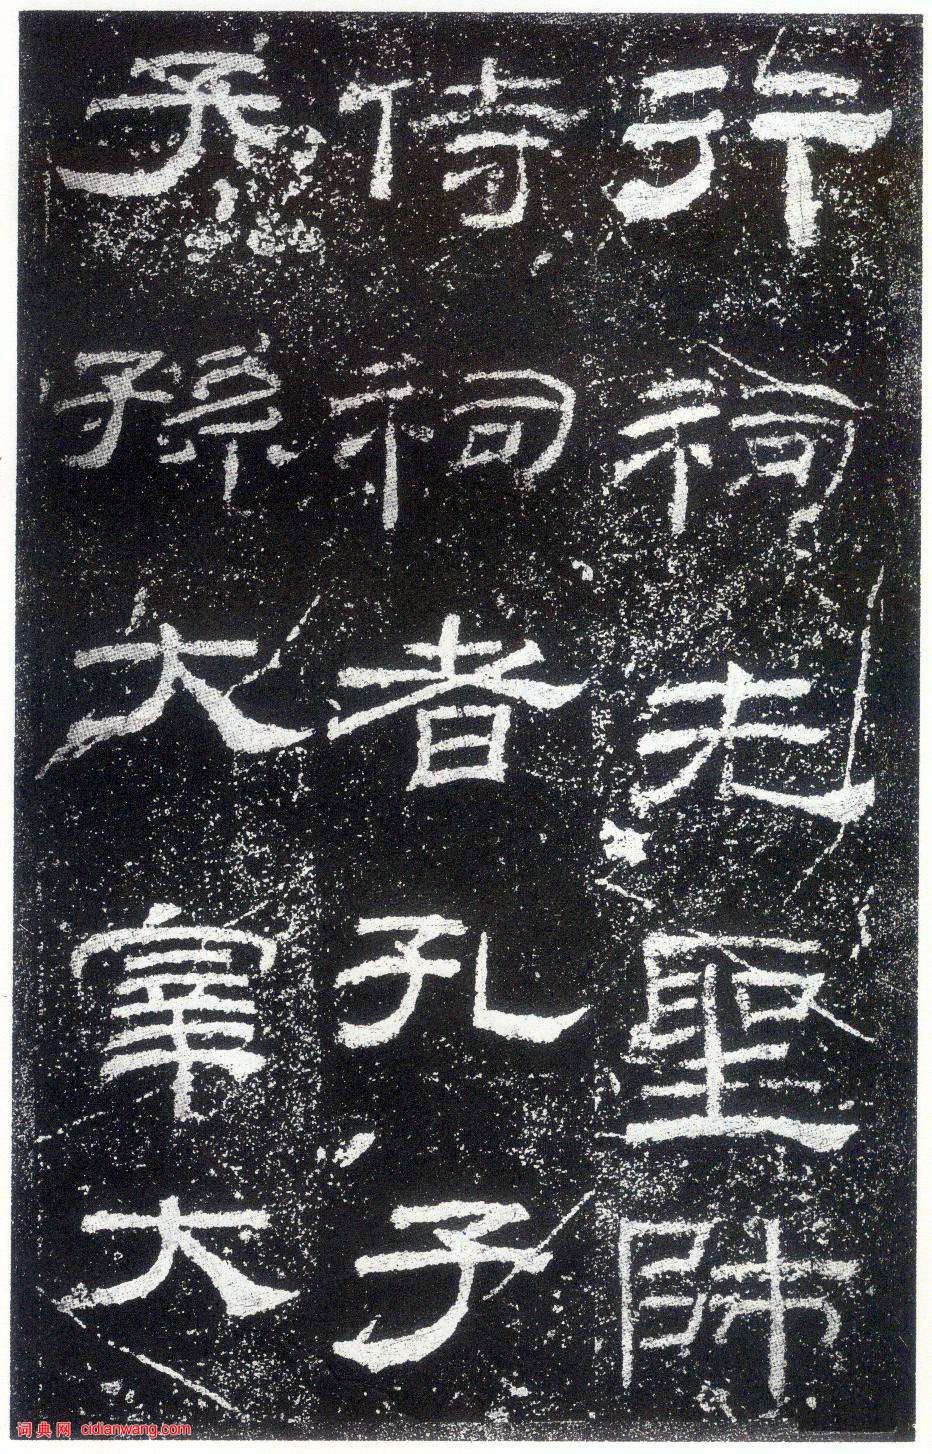 行祠先聖師
侍祠者孔子
子孫大宰大
词典网 cidianwang.com